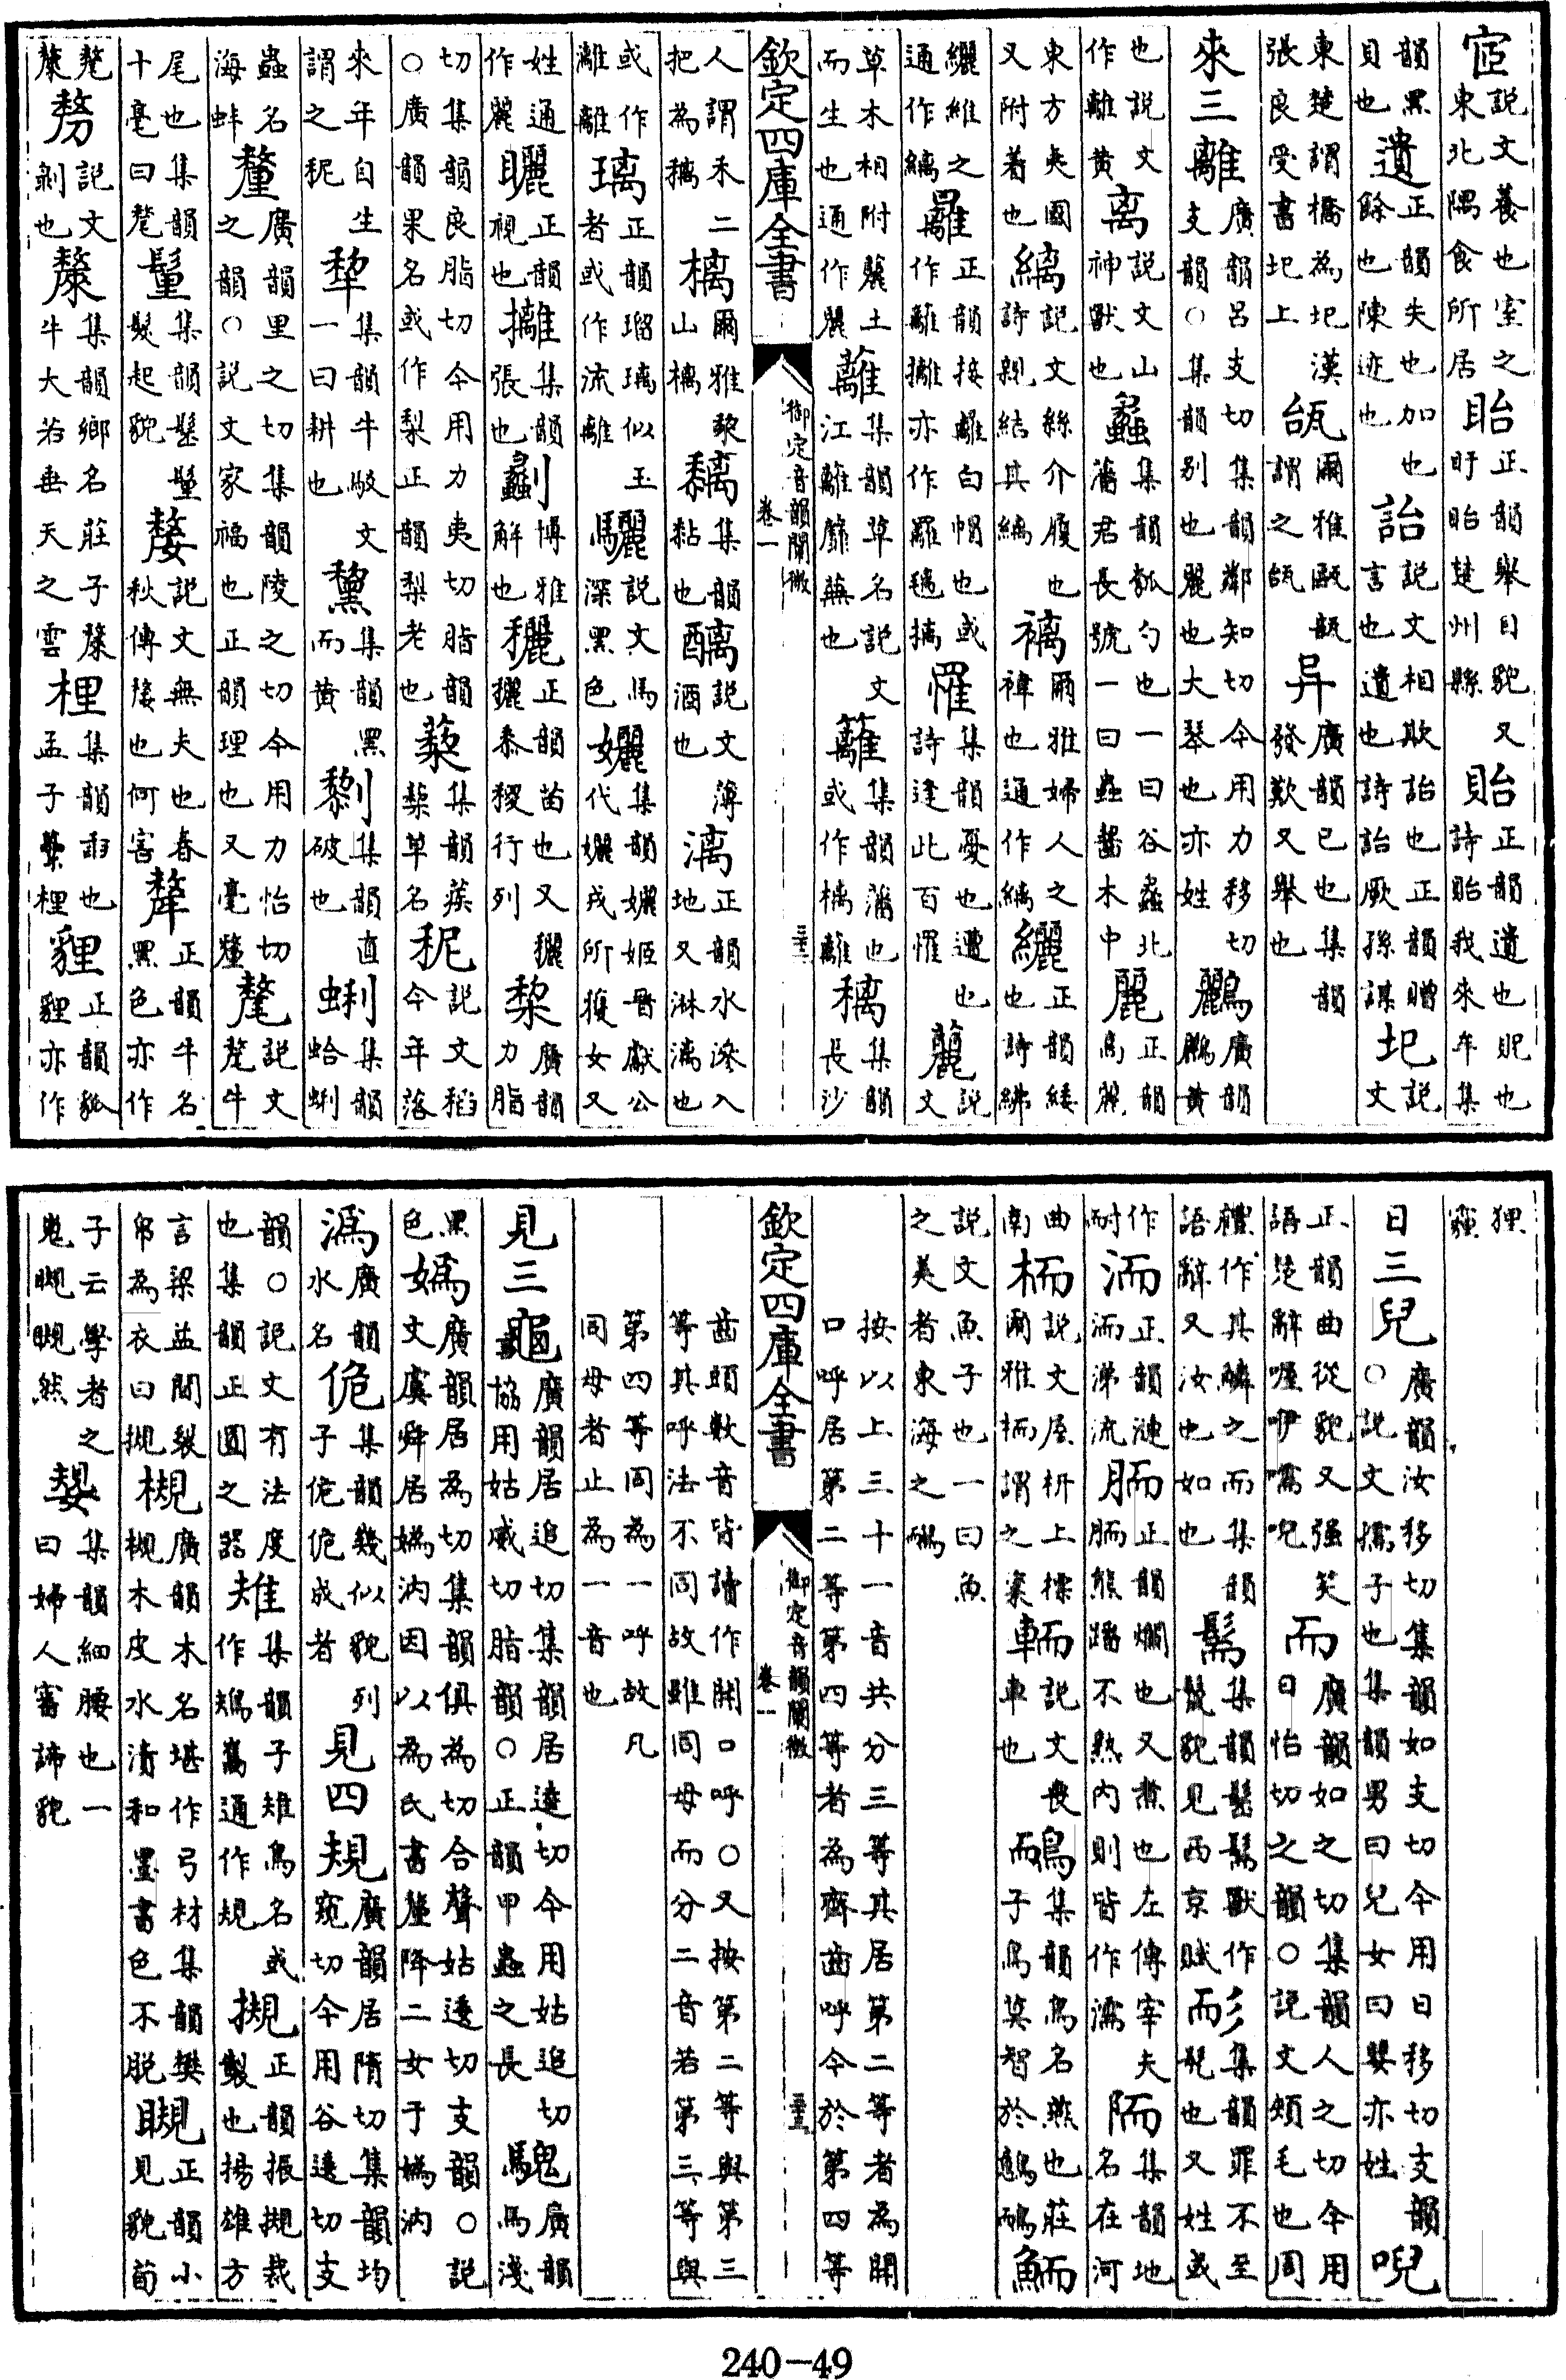 宧說文養也室之東北隅食所居眙正韻舉目貌又盱眙楚州縣貽正韻遺也貺也詩貽我來牟集
韻黑貝也遺正韻失也加也餘也陳迹也詒說文相欺詒也正韻贈言也遺也詩詒厥孫謀圯說文
東楚謂橋為圯漢張良受書圯上瓵爾雅甌瓿謂之瓵异廣韻已也集韻發歎又舉也
來三離廣韻呂支切集韻鄰知切今用力移切支韻○集韻別也麗也大琴也亦姓鸝廣韻鸝黃
也說文作離黃离說文山神獸也蠡集韻瓠勺也一曰谷蠡北藩君長號一曰蟲齧木中麗正韻高麗
東方夷國又附着也縭說文絲介履也詩親結其縭褵爾雅婦人之褘也通作縭纚正韻緌也詩紼
纚維之通作縭䍦正韻接䍦白帽也或作離攡亦作罹集韻憂也遭也詩逢此百罹䕻說文
草木相附䕻土而生也通作麗蘺集韻草名說文江蘺蘼蕪也籬集韻藩也或作樆離集韻長沙
欽定四庫全書 御定音韻闡微 卷一 三十三
人謂禾二把為樆爾雅棃山樆黐集韻黏也醨說文薄酒也漓正韻水滲入地又淋漓也
或作離璃正韻瑠璃似玉者或作流離驪說文馬深黑色孋集韻孋姬晉獻公代孋戎所獲女又
姓通作麗矖正韻視也攡集韻張也劙博雅解也穲正韻苗也又穲穲黍稷行列棃廣韻力脂
切集韻良脂切今用力夷切脂韻○廣韻果名或作梨正韻梨老也蔾集韻蒺蔾草名秜說文稻今年落
來年自生謂之秜犂集韻牛駁文一曰耕也黧集韻黑而黃㓯集韻直破也蜊集韻蛤蜊
蟲名海蚌釐廣韻里之切集韻陵之切今用力怡切之韻○說文家福也正韻理也又毫釐氂說文氂牛
尾也集韻十毫曰氂集韻髮起貌嫠說文無夫也春秋傳嫠也何害犛正韻牛名黑色亦作
氂剺說文剝也斄集韻鄉名莊子斄牛大若垂天之雲梩集韻臿也孟子虆梩貍正韻狐貍亦作
狸
日三兒廣韻汝移切集韻如支切今用日移切支韻○說文孺子也集韻男曰兒女曰嬰亦姓唲
正韻曲從貌又强笑語楚辭喔咿嚅唲而廣韻如之切集韻人之切今用日怡切之韻○說文頰毛也周
禮作其鱗之而集韻語辭又汝也如也髵集韻髬髵獸作鬣貌見西京賦耏集韻罪不至髡也又姓或
作耐洏正韻漣洏涕流胹正韻爛也又煮也左傳宰夫胹熊蹯不熟內則皆作濡陑集韻地名在河
曲南栭說文屋枅上標爾雅栭謂之楶輀說文喪車也鴯集韻鳥名燕也莊子鳥莫智於鷾鴯鮞
說文魚子也一曰魚之美者東海之鮞
按以上三十一音共分三等其居第二等者為開口呼居第二等第四等者為齊齒呼今於第四等
欽定四庫全書 御定音韻闡微 卷一 三十三
齒頭數音皆讀作開口呼○又按第二等與第三等其呼法不同故雖同母而分二音若第三等與
第四等同為一呼故凡同母者止為一音也
見三龜廣韻居追切集韻居逵切今用姑追切協用姑威切脂韻○正韻甲蟲之長騩廣韻馬淺
黑色媯廣韻居為切集韻俱為切合聲姑逶切支韻○說文虞舜居媯汭因以為氏書釐降二女于媯汭
溈廣韻水名佹集韻幾似貌列子佹佹成者見四規廣韻居隋切集韻均窺切今用谷逶切支
韻○說文有法度也集韻正圓之器雉集韻子雉鳥名或作鳺嶲通作規摫正韻振摫裁製也揚雄方
言梁益間裂帛為衣曰摫槻廣韻木名堪作弓材集韻樊槻木皮水漬和墨書色不脫瞡正韻小見貌荀
子云學者之嵬瞡瞡然嫢集韻細腰也一曰婦人審諦貌
240-49